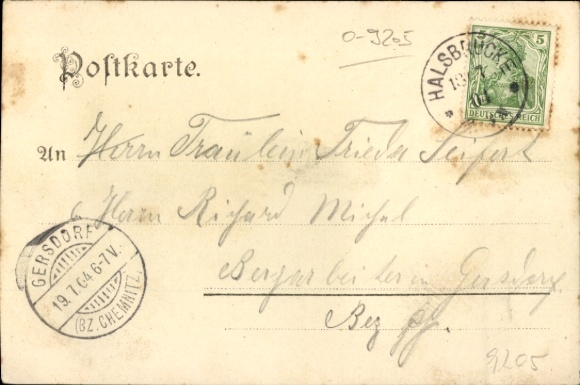 O-9205
Postkarte.
HALSBRÜCKE
5
DEUTSCHES REICH
An Herrn Fräulein Frieda Seifert
Herrn Richard Michel
GERSDORF
19.7.04.6-7V.
(BZ.CHEMNITZ.)
Bergarbeiter in Gersdorf
Bez
9205